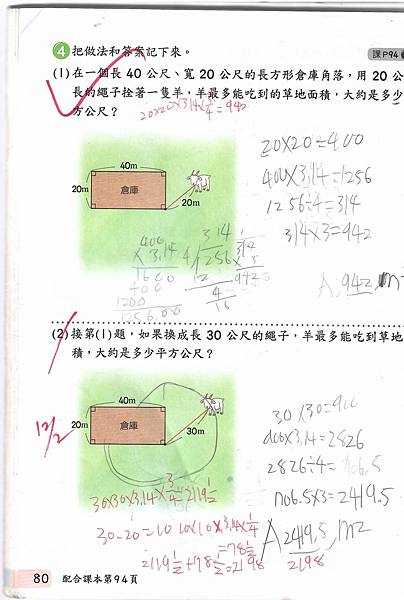 4 把做法和答案記下來。
課P94
(1)在一個長 40 公尺、寬 20 公尺的長方形倉庫角落，用 20 公
長的繩子拴著一隻羊，羊最多能吃到的草地面積，大約是多少
方公尺？
20×20×3.14×3/4=942
40m
20m
倉庫
20m
20×20=400
400×3.14=1256
1256÷4=314
314×3=942
A 942 m²
400
× 3.14
1600
400
1200
1256.00
314
4 1256
12
4
16
314
× 3
942
(2)接第(1)題，如果換成長 30 公尺的繩子，羊最多能吃到草地
積，大約是多少平方公尺？
12/2
40m
20m
倉庫
30m
30×30=900
900×3.14=2826
2826÷4=706.5
706.5×3=2419.5
A 2419.5 m²
2198
30×30×3.14×3/4=2119 1/2
30-20=10 10×10×3.14×1/4
=78 1/2
2119 1/2+78 1/2=2198
80 配合課本第94頁